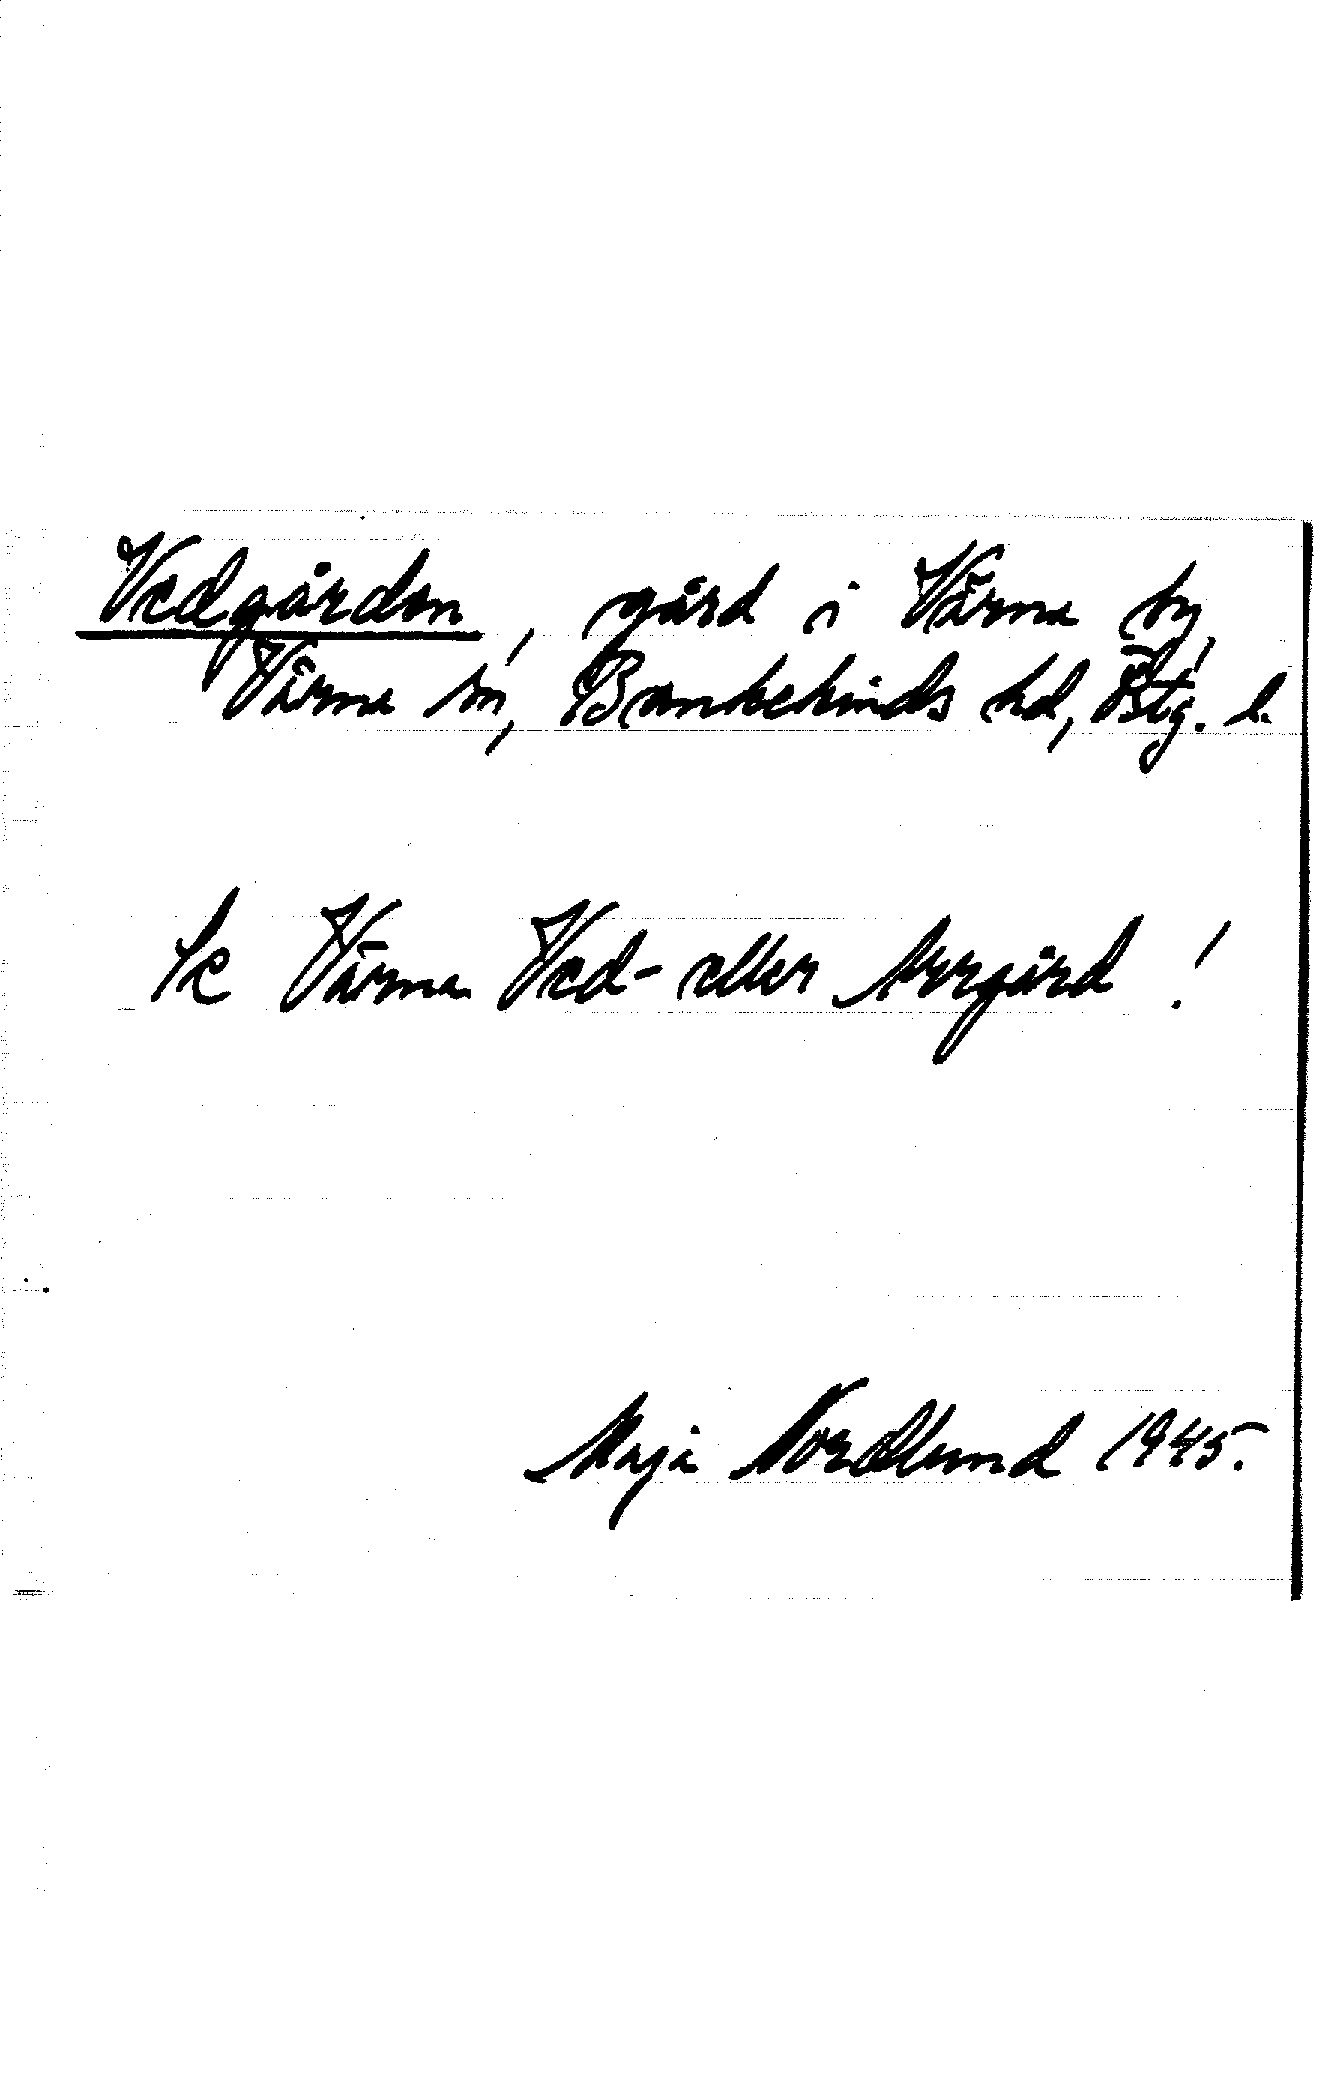 Vedgården, gård i Värna by,
Värna sn, Bankekinds hd, Östg. l.
Se Värna Ved- eller Norrgård!
Maja Nordlund 1945.